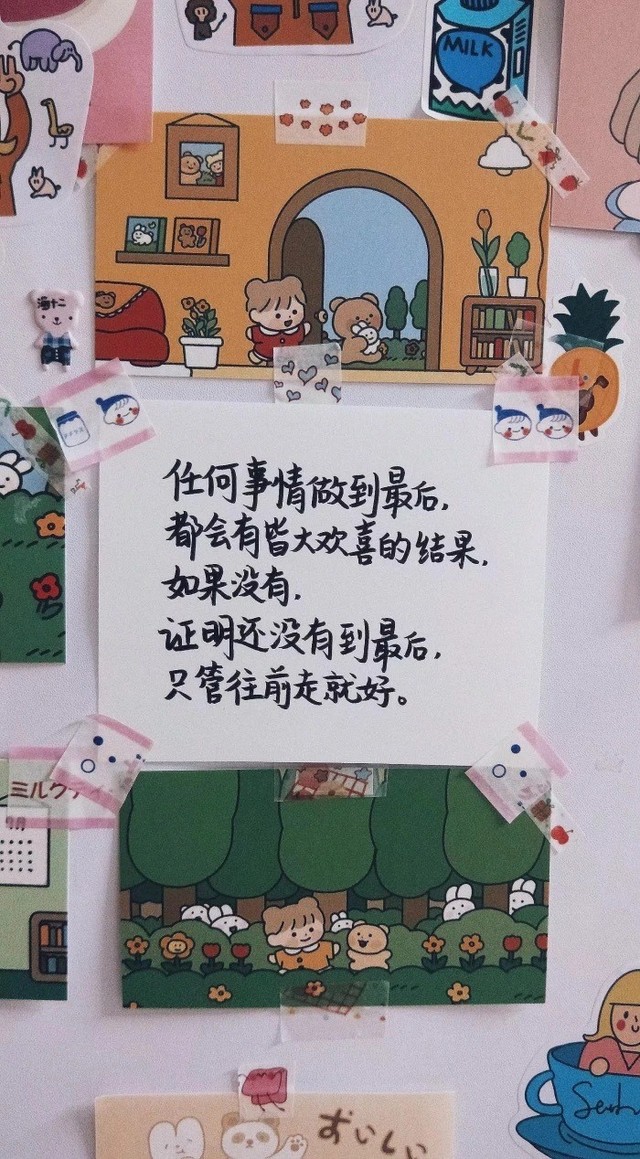 MILK
任何事情做到最后,
都会有皆大欢喜的结果,
如果没有,
证明还没有到最后,
只管往前走就好。
ミルクティ
おいしい